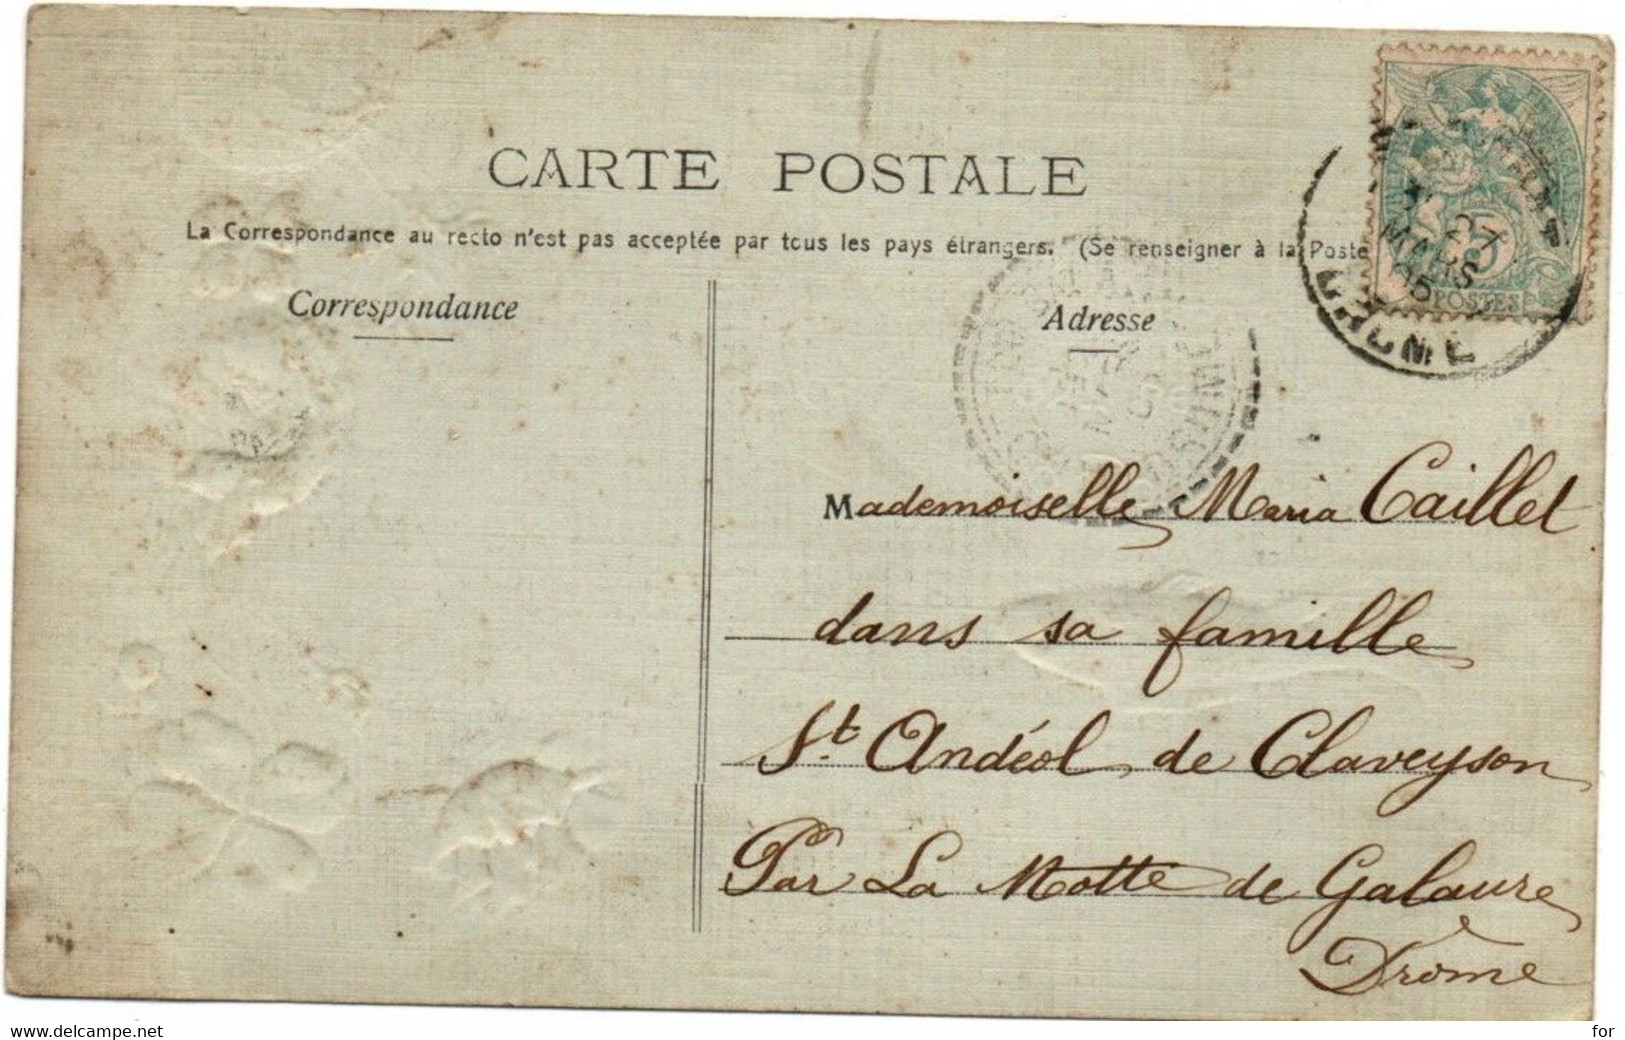 CARTE POSTALE
La Correspondance au recto n'est pas acceptée par tous les pays étrangers. (Se renseigner à la Poste
Correspondance
Adresse
27
MARS
05
5
POSTES
DROME
Mademoiselle Maria Caillet
dans sa famille
St Andéol de Claveyson
Par La Motte de Galaure
Drôme
www.delcampe.net
for